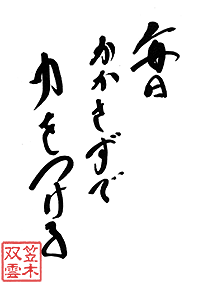 毎日
かかさずで
力をつける
笠木
双雲